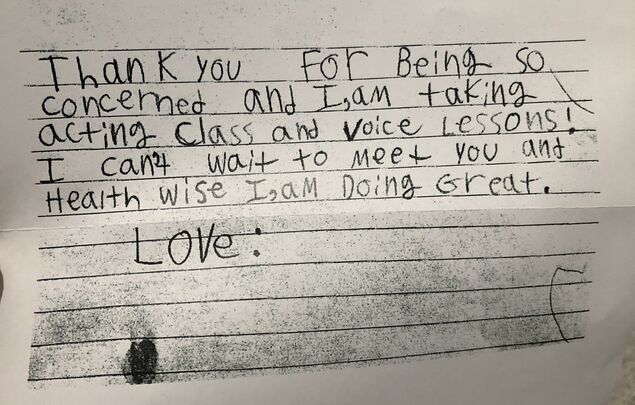 Thank you For Being so
concerned and I,am taking
acting Class and Voice Lessons!
I can't wait to meet you and
Health wise I,am Doing Great.
Love: